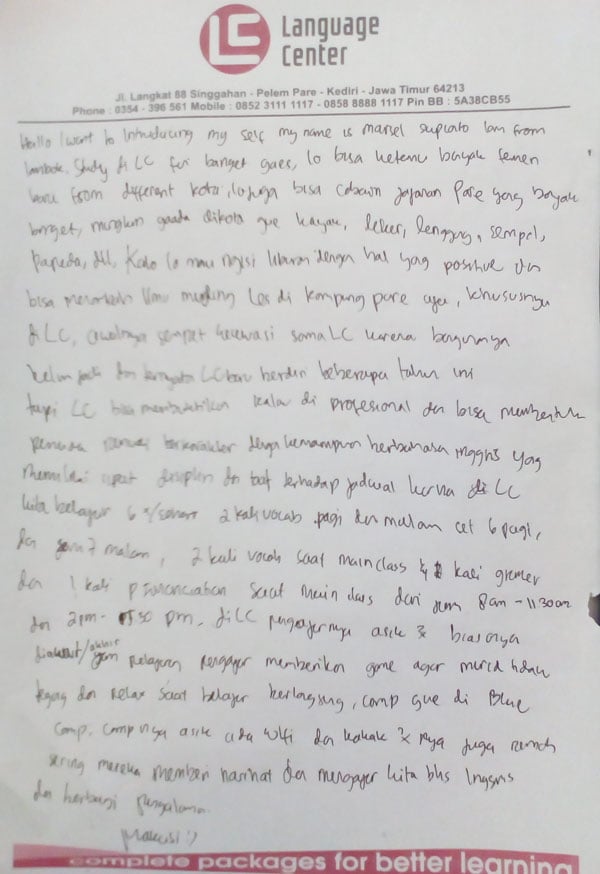 LC Language
Center
Jl. Langkat 88 Singgahan - Pelem Pare - Kediri - Jawa Timur 64213
Phone : 0354 - 396 561 Mobile : 0852 3111 1117 - 0858 8888 1117 Pin BB : 5A38CB55
Hallo I want to Introducing my self my name is from
Study di LC fun banget gaes, lo bisa ketemu banyak temen
baru from different kota, lo juga bisa cobain jajanan Pare yang banyak
banget, mungkin gaada dikota gue kayak, leker, lenggang, sempol,
Papeda, dll, Kalo lo mau ngisi liburan dengan hal yang positive dan
bisa ilmu mending Les di kampung pare aja, khususnya
di LC, awalnya sempat sama LC karena
dan ternyata LC baru berdiri beberapa tahun ini
tapi LC bisa membuktikan kalau di profesional dan bisa membentuk
berkarakter dengan kemampuan berbahasa inggris yang
disiplin dan taat terhadap jadwal karna di LC
kita belajar 6 x/sehari 2 kali vocab pagi dan malam 6 pagi,
dan jam 7 malam, 2 kali vocab saat mainclass kali
dan 1 kali saat main class dari jam 8 am - 11 30 am
dan 2 pm - 30 pm, di LC pengajarnya asik & biasanya
/akhir jam pelajaran pengajar memberikan game agar murid tidak
tegang dan relax saat belajar berlangsung, camp gue di Blue
camp, campnya asik ada wifi dan kakak 2x nya juga ramah
sering mereka memberi nasihat dan mengajar kita bhs Inggris
dan berbagi pengalaman.
Makasi :)
complete packages for better learning